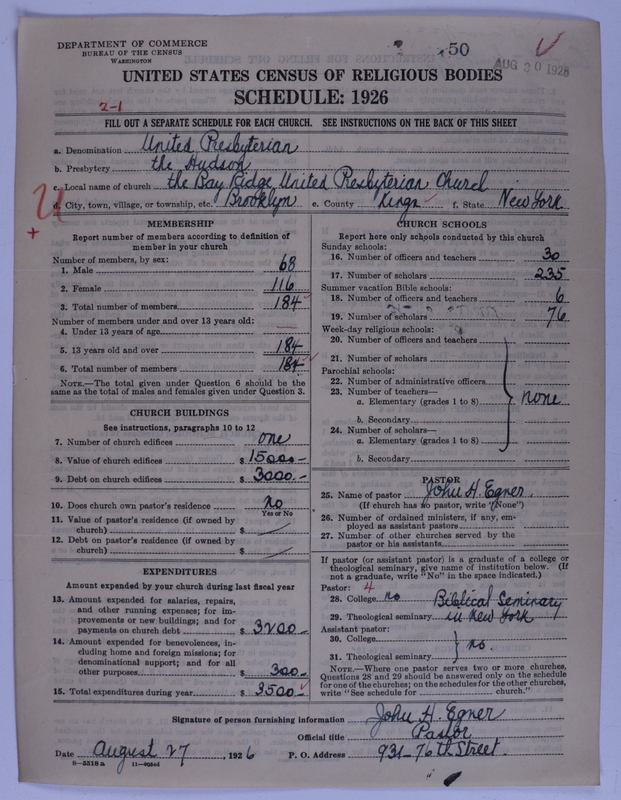 DEPARTMENT OF COMMERCE
BUREAU OF THE CENSUS
WASHINGTON
50
AUG 30 1926
UNITED STATES CENSUS OF RELIGIOUS BODIES
SCHEDULE: 1926
2-1
FILL OUT A SEPARATE SCHEDULE FOR EACH CHURCH. SEE INSTRUCTIONS ON THE BACK OF THIS SHEET
a. Denomination United Presbyterian
b. Presbytery the Hudson
c. Local name of church the Bay Ridge United Presbyterian Church
d. City, town, village, or township, etc. Brooklyn e. County Kings f. State New York
MEMBERSHIP
Report number of members according to definition of
member in your church
Number of members, by sex:
1. Male 68
2. Female 116
3. Total number of members 184
Number of members under and over 13 years old:
4. Under 13 years of age —
5. 13 years old and over 184
6. Total number of members 184
NOTE.—The total given under Question 6 should be the
same as the total of males and females given under Question 3.
CHURCH BUILDINGS
See instructions, paragraphs 10 to 12
7. Number of church edifices one
8. Value of church edifices $ 15000.-
9. Debt on church edifices $ 3000.-
10. Does church own pastor's residence no
Yes or No
11. Value of pastor's residence (if owned by
church) $
12. Debt on pastor's residence (if owned by
church) $
EXPENDITURES
Amount expended by your church during last fiscal year
13. Amount expended for salaries, repairs,
and other running expenses; for im-
provements or new buildings; and for
payments on church debt $ 3200.-
14. Amount expended for benevolences, in-
cluding home and foreign missions; for
denominational support; and for all
other purposes $ 300.-
15. Total expenditures during year $ 3500.-
CHURCH SCHOOLS
Report here only schools conducted by this church
Sunday schools:
16. Number of officers and teachers 30
17. Number of scholars 235
Summer vacation Bible schools:
18. Number of officers and teachers 6
19. Number of scholars 76
Week-day religious schools:
20. Number of officers and teachers
21. Number of scholars
Parochial schools:
22. Number of administrative officers
23. Number of teachers—
a. Elementary (grades 1 to 8) none
b. Secondary
24. Number of scholars—
a. Elementary (grades 1 to 8)
b. Secondary
PASTOR
25. Name of pastor John H. Egner.
(If church has no pastor, write "None")
26. Number of ordained ministers, if any, em-
ployed as assistant pastors
27. Number of other churches served by the
pastor or his assistants
If pastor (or assistant pastor) is a graduate of a college or
theological seminary, give name of institution below. (If
not a graduate, write "No" in the space indicated.)
Pastor: 4
28. College no Biblical Seminary
29. Theological seminary in New York
Assistant pastor:
30. College
no.
31. Theological seminary
NOTE.—Where one pastor serves two or more churches,
Questions 28 and 29 should be answered only on the schedule
for one of the churches; on the schedules for the other churches,
write "See schedule for church."
Signature of person furnishing information John H. Egner
Official title Pastor
Date August 27, 1926 P. O. Address 931-76th Street.
8-5518a 11-